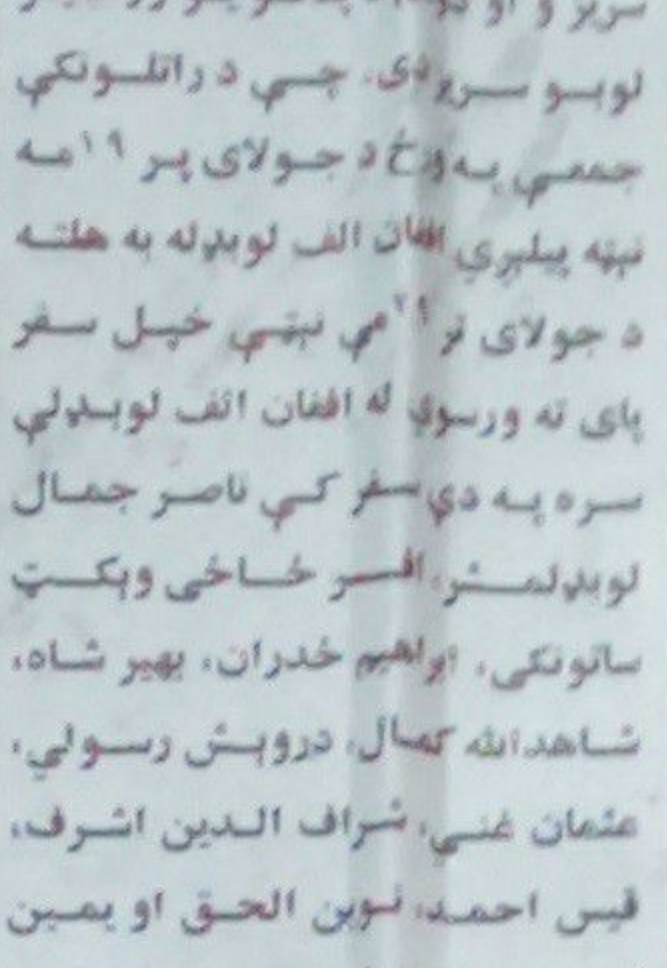 لوبو سریز دی. چې د راتلونکې
جمعې په ورځ د جولای پر ۱۹مه
نېټه پیلېږي افغان الف لوبډله به هلته
د جولای تر ۲۹مې نېټې خپل سفر
پای ته ورسوي له افغان الف لوبډلې
سره په دې سفر کې ناصر جمال
لوبډلمشر، افسر ځاځی ویکټ
ساتونکی، ابراهیم ځدران، بهیر شاه،
شاهدالله کمال، درویش رسولي،
عثمان غني، شراف الدین اشرف،
قیس احمد، نوین الحق او یمین